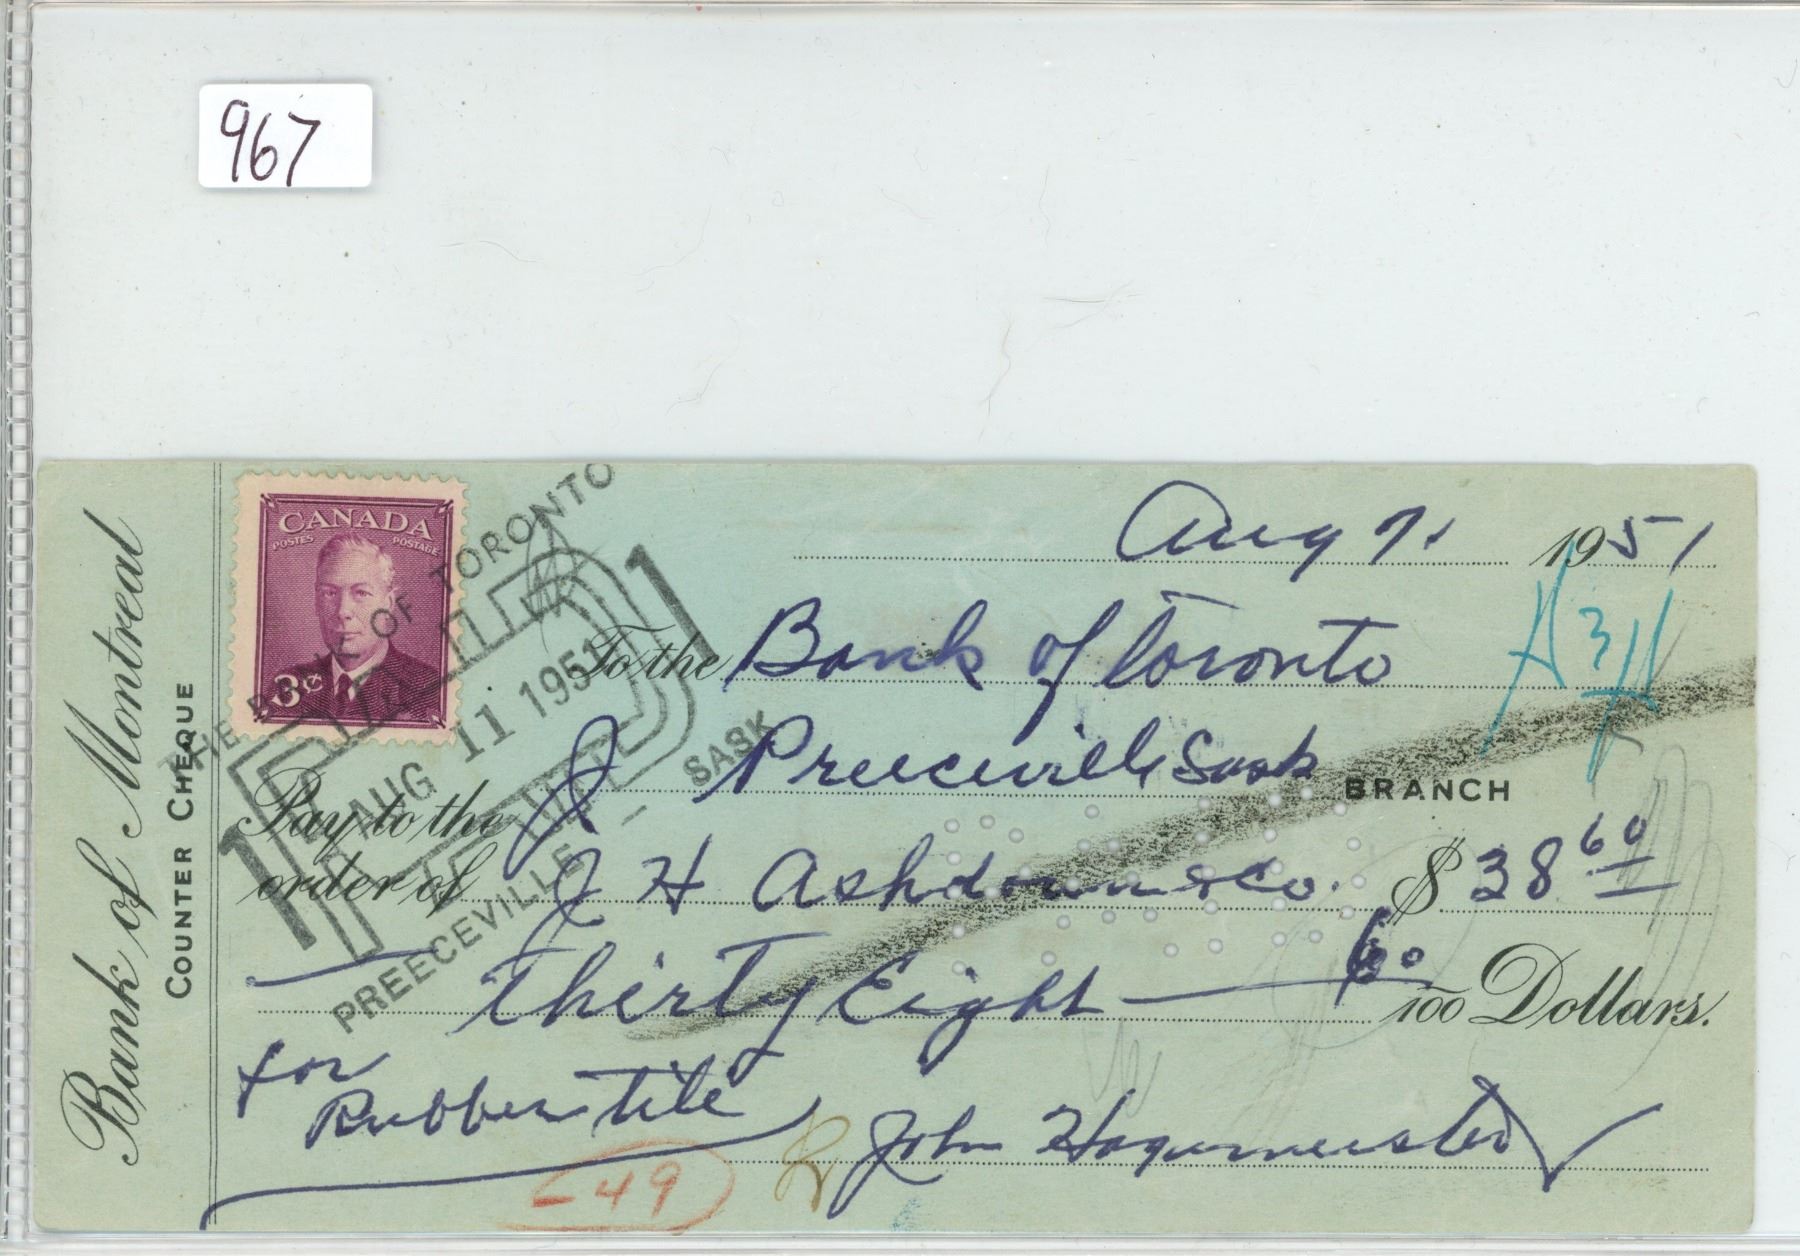 967
Bank of Montreal
COUNTER CHEQUE
CANADA
POSTES POSTAGE
3¢
THE BANK OF TORONTO
AUG 11 1951
PREECEVILLE - SASK
Aug 7. 1951
To the Bank of Toronto
Preeceville Sask BRANCH
Pay to the
order of J H Ashdown & Co. $ 38 60
Thirty Eight 60/100 Dollars.
for
Rubber tile
John Hagermeister
-49